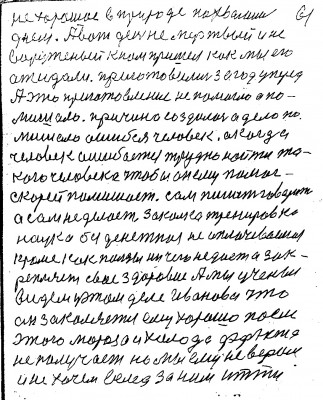 нехорошое в природе похвалили 61
днем. А вот ден не мертвый и не
к нам пришел как мы его
ожидали. приготовилис за году вперед
А это приготовление не помогло а по-
мишало. причино создалос а дело по
мишало ошибся человек. а когда
человек ошибается трудно найти та-
кого человека чтобы он ему помог-
скорей помишает. сам пишит говорить
а сам не делает. Закалка тренировка
наука бы денежная не оплачеваимая
кроме как ползы ничего не дает а зак-
репляет свое здоровие А мы ученыи
видем у этом деле Иванова что
он закаляется ему хорошо после
этого мороза и холода дефекта
не получает но мы ему не верим
и не хочем вслед за ним итти